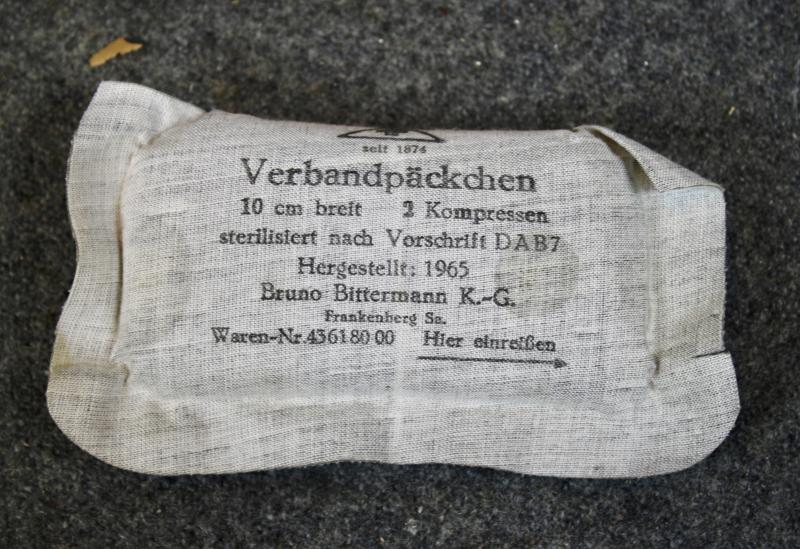 seit 1874
Verbandpäckchen
10 cm breit 2 Kompressen
sterilisiert nach Vorschrift DAB7
Hergestellt: 1965
Bruno Bittermann K.-G.
Frankenberg Sa.
Waren-Nr. 436180 00 Hier einreißen